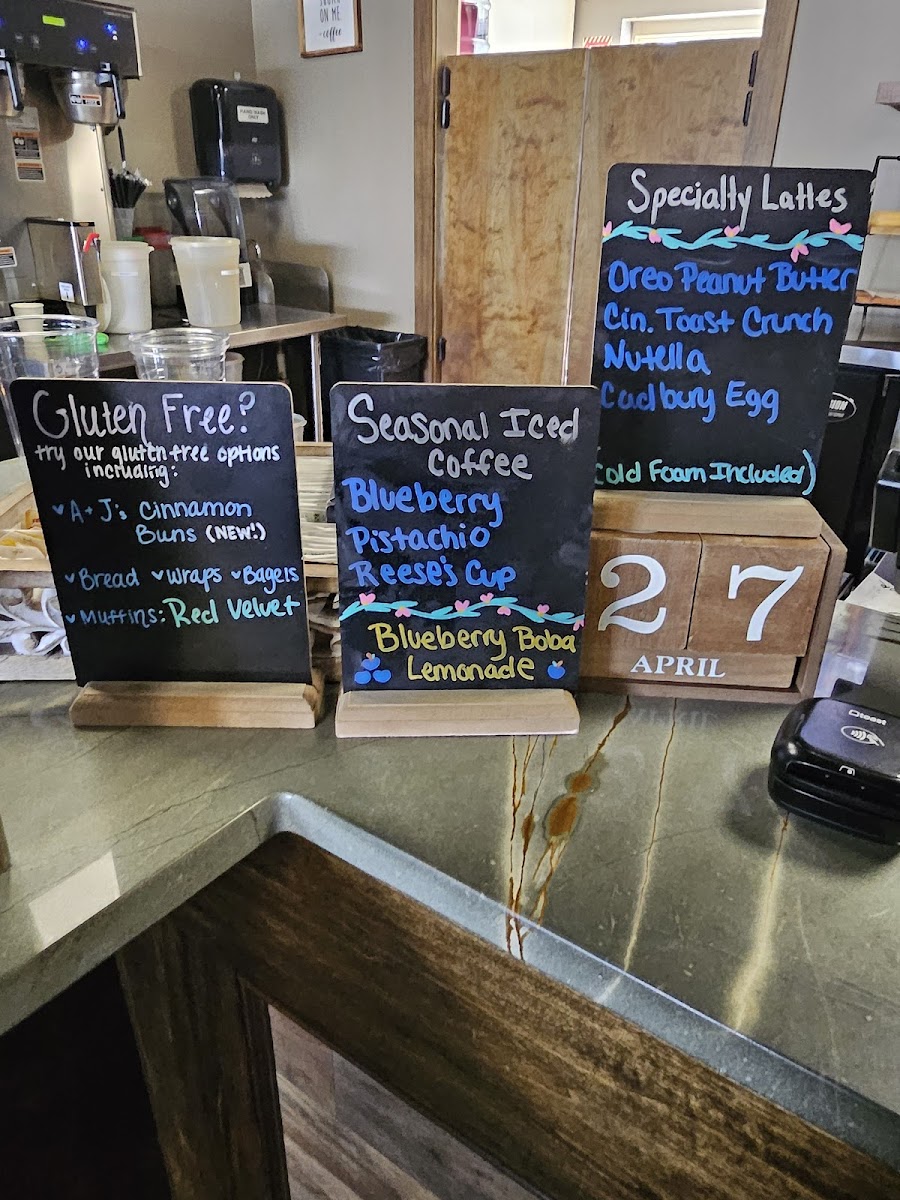 ON ME
coffee
HAND WASH
ONLY
Gluten Free?
try our gluten free options
including:
A+J's Cinnamon
Buns (NEW!)
Bread Wraps Bagels
Muffins: Red Velvet
Seasonal Iced
Coffee
Blueberry
Pistachio
Reese's Cup
Blueberry Boba
Lemonade
Specialty Lattes
Oreo Peanut Butter
Cin. Toast Crunch
Nutella
Cadbury Egg
Cold Foam Included)
27
APRIL
toast